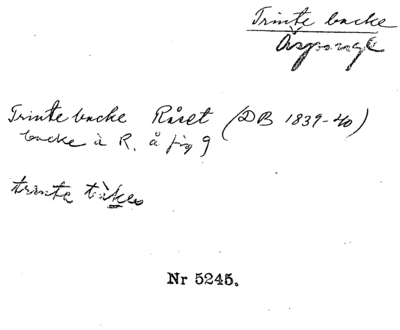 Trinte backe
Trinte backe Råset (DB 1839-40)
backe à R. å fig 9
trinte
Nr 5245.